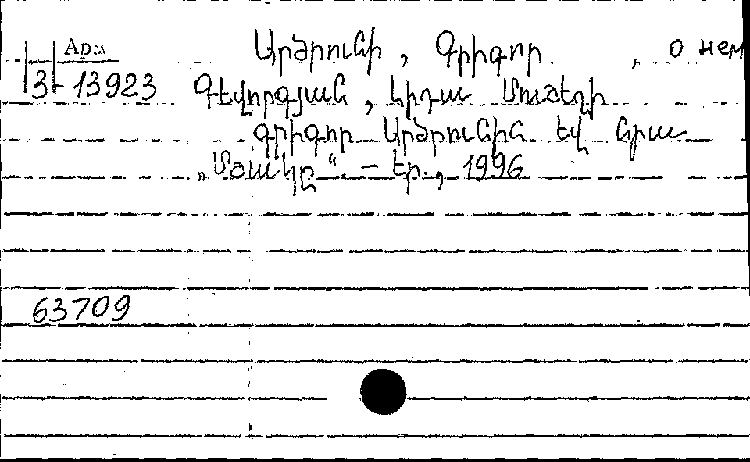 Арм
Արծրունի, Գրիգոր, о нем
3-13923 Գևորգյան, Լիդա Մուշեղի
Գրիգոր Արծրունին եվ նրա
„Մշակը“. - Եր., 1996
63709